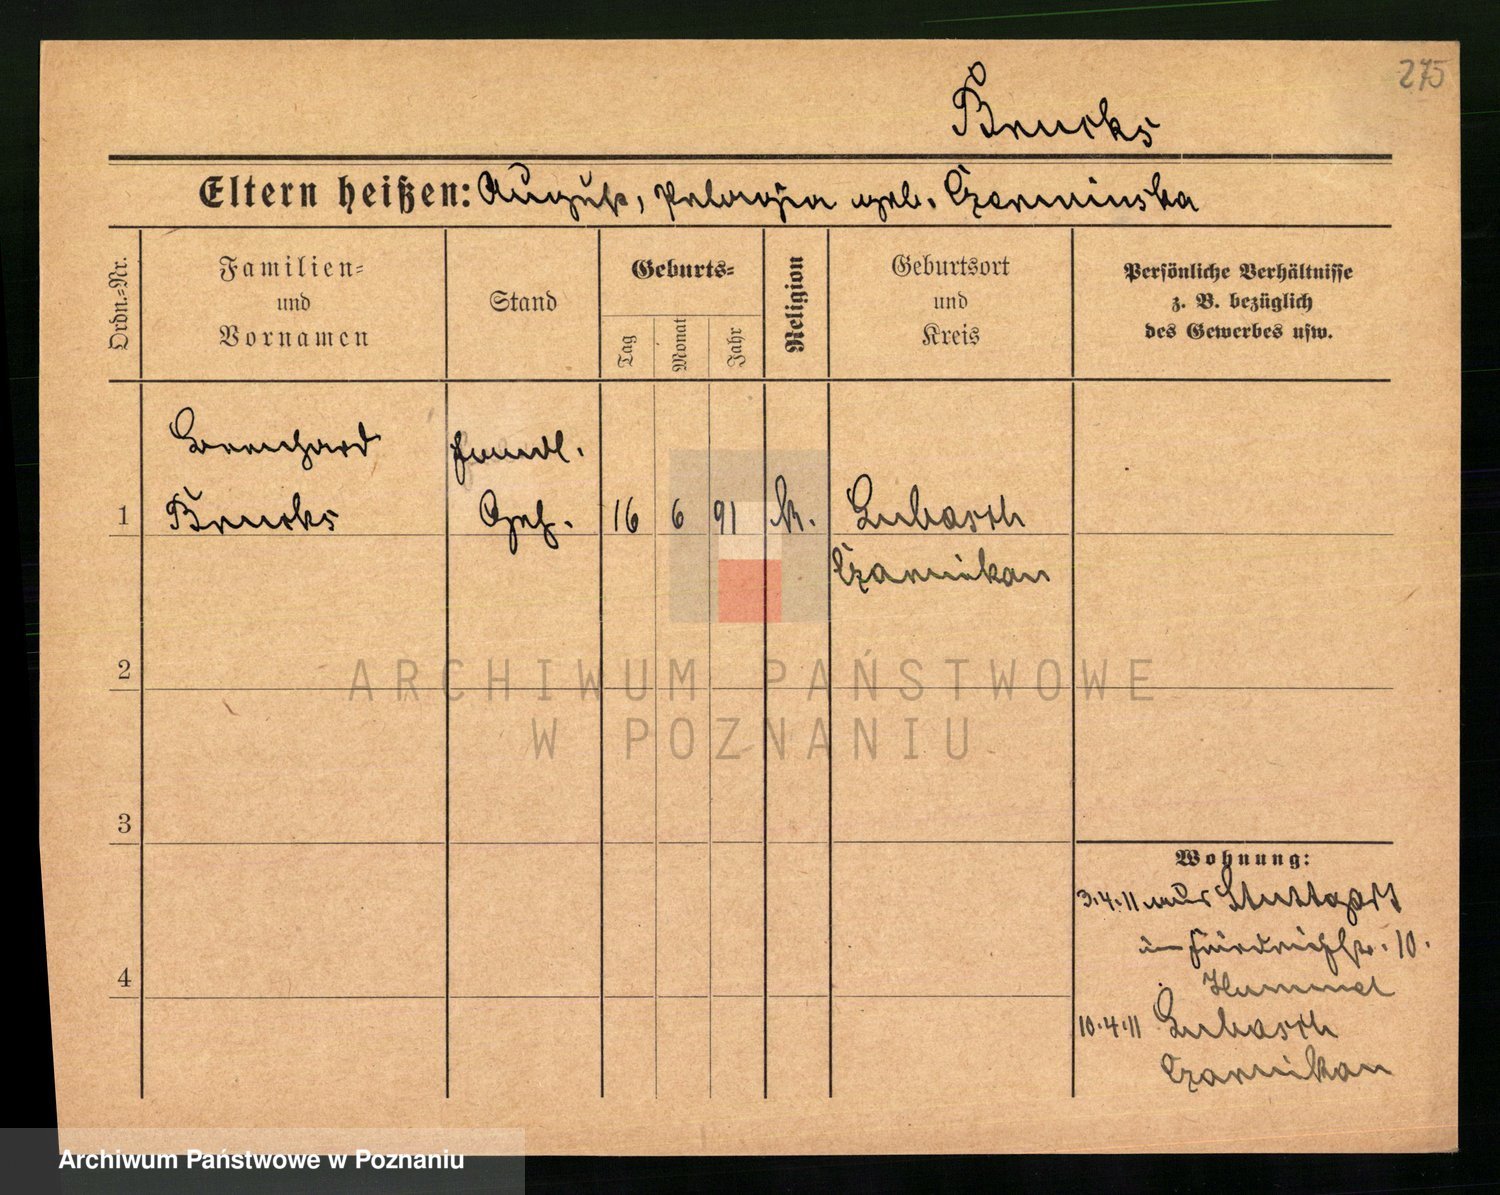 275
Brucks
Eltern heißen: August, Pelagia geb. Czarminska
Ordn.-Nr.
Familien-
und
Vornamen
Stand
Geburts-
Tag
Monat
Jahr
Religion
Geburtsort
und
Kreis
Persönliche Verhältnisse
z. B. bezüglich
des Gewerbes usw.
Bernhard
Handl.
1 Brucks Geh. 16 6 91 k. Lubasch
Czarnikau
2
ARCHIWUM PAŃSTWOWE
W POZNANIU
3
Wohnung:
3.4.11 aus Stuttgart
in Friedrichstr. 10.
Hummel
4
10.4.11 Lubasch
Czarnikau
Archiwum Państwowe w Poznaniu